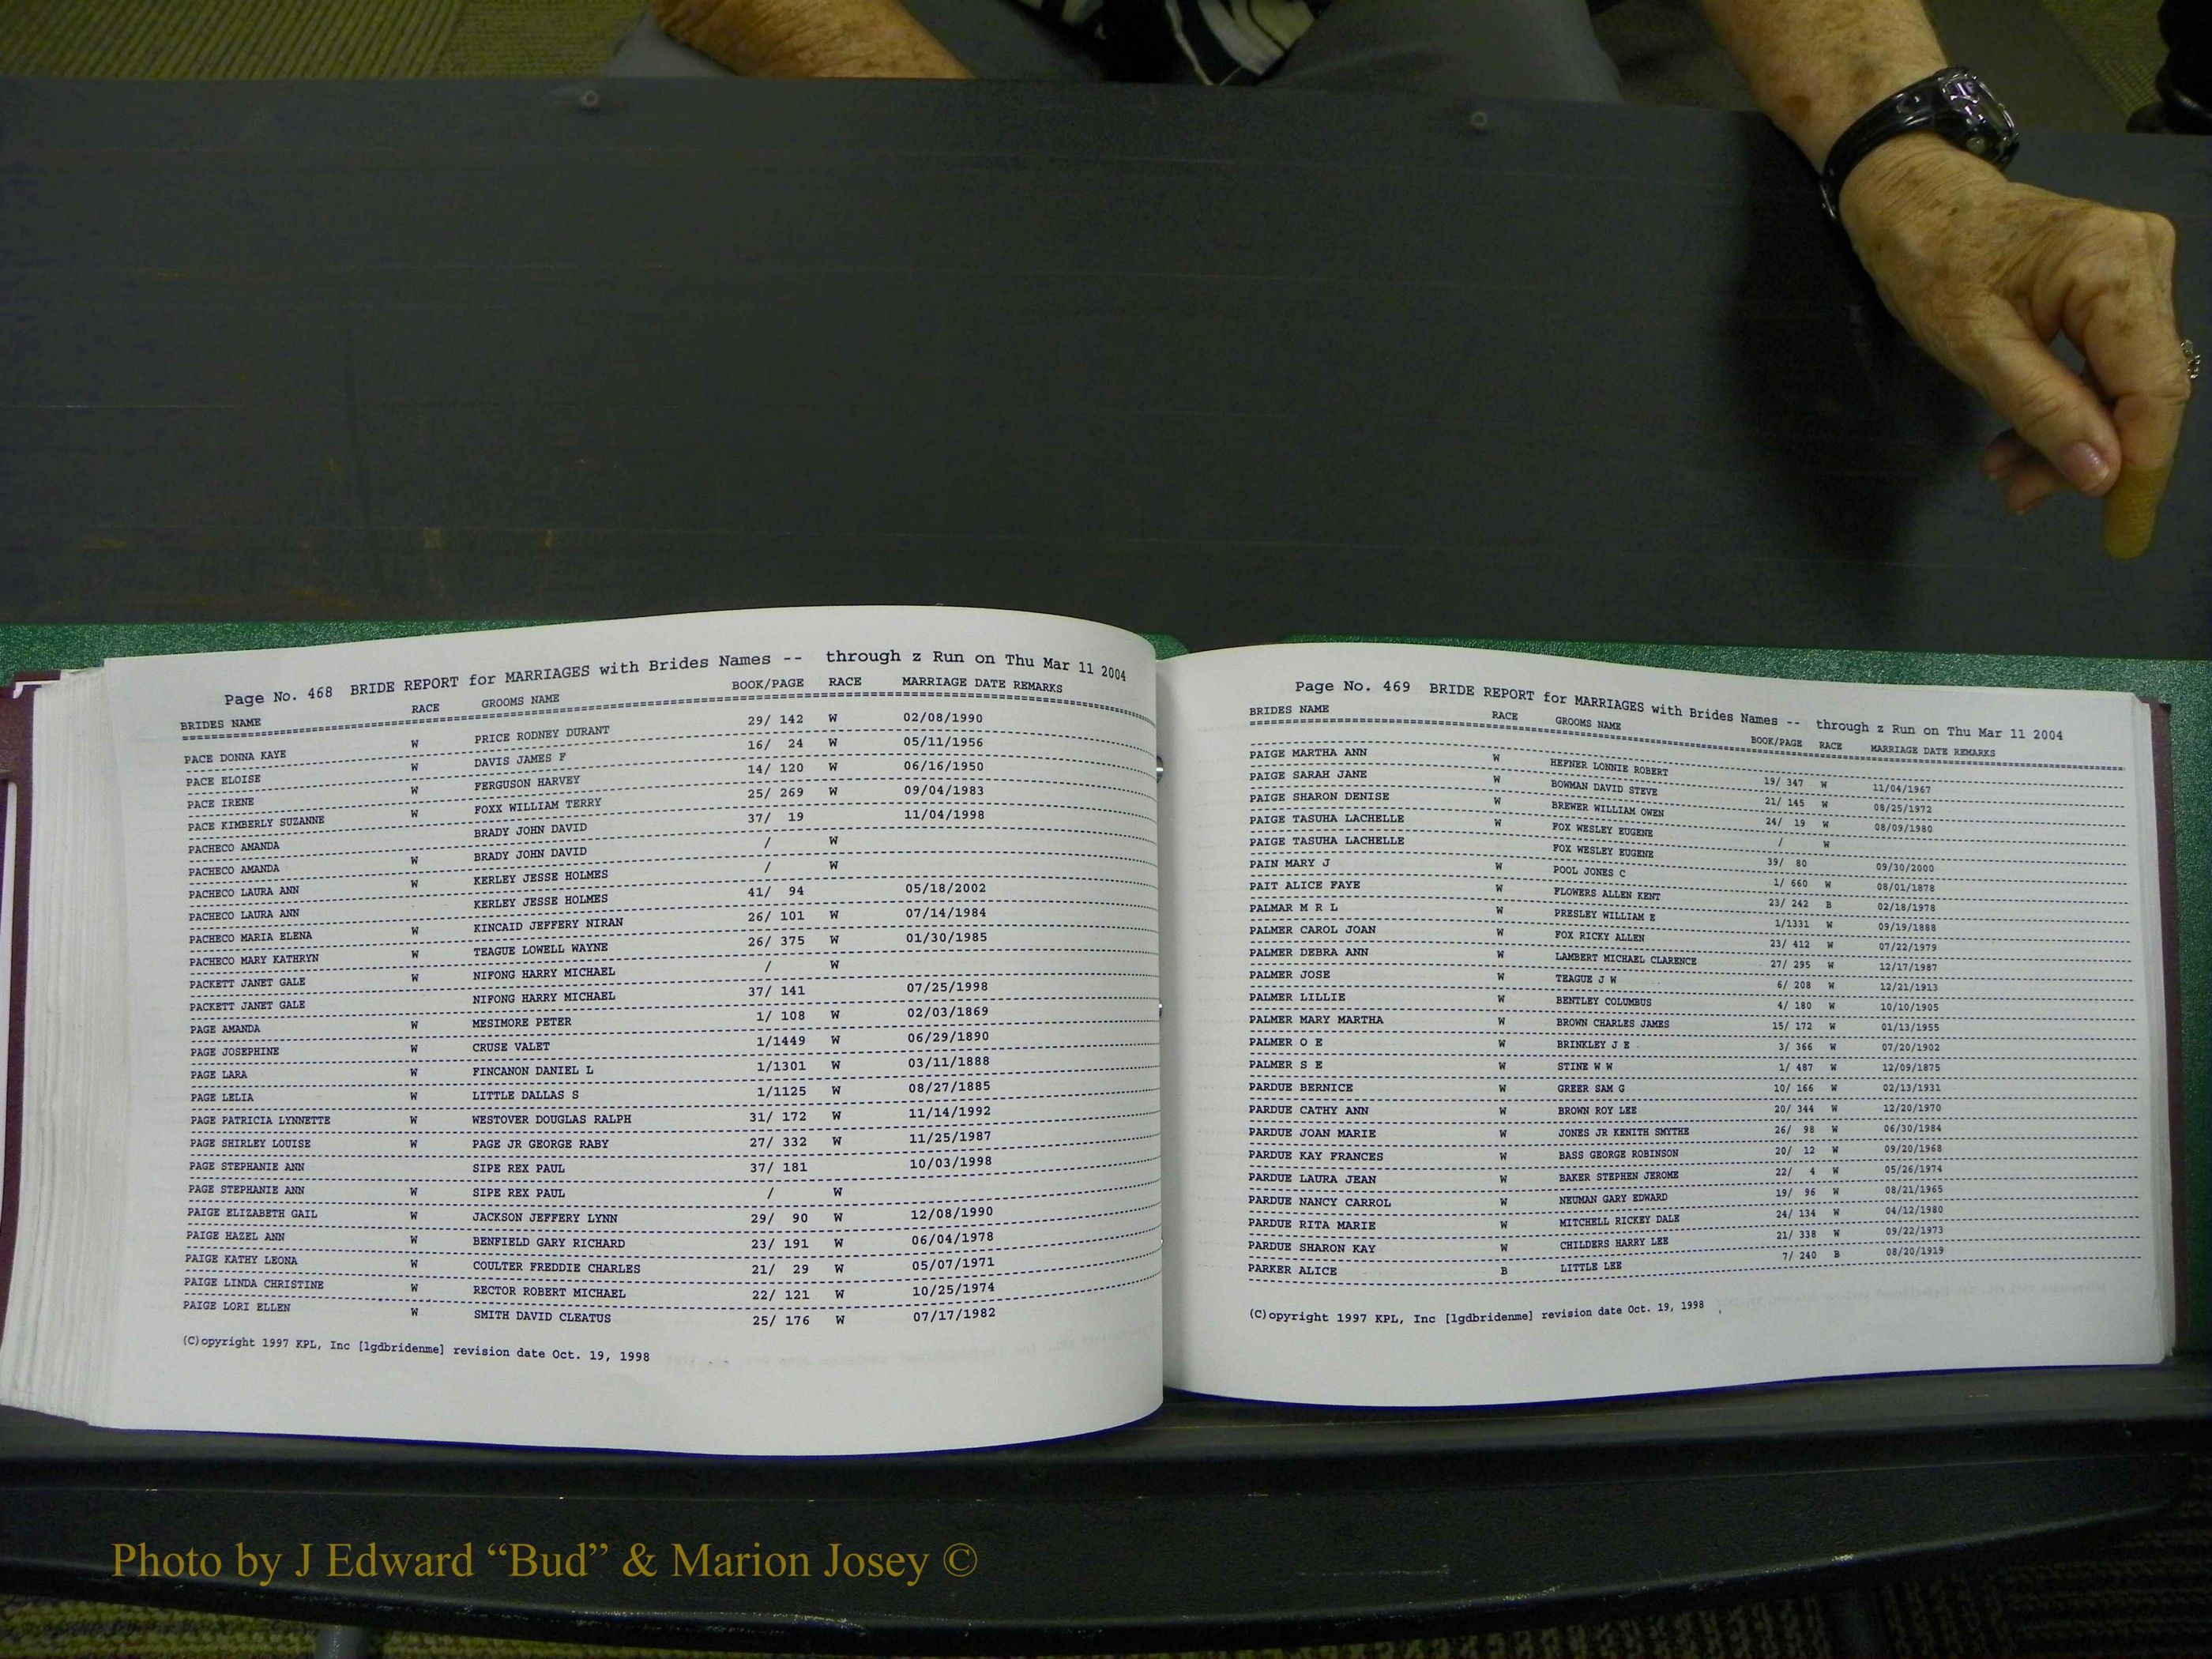 Page No. 468 BRIDE REPORT for MARRIAGES with Brides Names -- through z Run on Thu Mar 11 2004
BRIDES NAME RACE GROOMS NAME BOOK/PAGE RACE MARRIAGE DATE REMARKS
PACE DONNA KAYE W PRICE RODNEY DURANT 29/ 142 W 02/08/1990
PACE ELOISE W DAVIS JAMES F 16/ 24 W 05/11/1956
PACE IRENE W FERGUSON HARVEY 14/ 120 W 06/16/1950
PACE KIMBERLY SUZANNE W FOXX WILLIAM TERRY 25/ 269 W 09/04/1983
PACHECO AMANDA BRADY JOHN DAVID 37/ 19 11/04/1998
PACHECO AMANDA W BRADY JOHN DAVID / W
PACHECO LAURA ANN W KERLEY JESSE HOLMES / W
PACHECO LAURA ANN KERLEY JESSE HOLMES 41/ 94 05/18/2002
PACHECO MARIA ELENA W KINCAID JEFFERY NIRAN 26/ 101 W 07/14/1984
PACHECO MARY KATHRYN W TEAGUE LOWELL WAYNE 26/ 375 W 01/30/1985
PACKETT JANET GALE W NIFONG HARRY MICHAEL / W
PACKETT JANET GALE NIFONG HARRY MICHAEL 37/ 141 07/25/1998
PAGE AMANDA W MESIMORE PETER 1/ 108 W 02/03/1869
PAGE JOSEPHINE W CRUSE VALET 1/1449 W 06/29/1890
PAGE LARA W FINCANON DANIEL L 1/1301 W 03/11/1888
PAGE LELIA W LITTLE DALLAS S 1/1125 W 08/27/1885
PAGE PATRICIA LYNNETTE W WESTOVER DOUGLAS RALPH 31/ 172 W 11/14/1992
PAGE SHIRLEY LOUISE W PAGE JR GEORGE RABY 27/ 332 W 11/25/1987
PAGE STEPHANIE ANN SIPE REX PAUL 37/ 181 10/03/1998
PAGE STEPHANIE ANN W SIPE REX PAUL / W
PAIGE ELIZABETH GAIL W JACKSON JEFFERY LYNN 29/ 90 W 12/08/1990
PAIGE HAZEL ANN W BENFIELD GARY RICHARD 23/ 191 W 06/04/1978
PAIGE KATHY LEONA W COULTER FREDDIE CHARLES 21/ 29 W 05/07/1971
PAIGE LINDA CHRISTINE W RECTOR ROBERT MICHAEL 22/ 121 W 10/25/1974
PAIGE LORI ELLEN W SMITH DAVID CLEATUS 25/ 176 W 07/17/1982
(C)opyright 1997 KPL, Inc [lgdbridenme] revision date Oct. 19, 1998
Page No. 469 BRIDE REPORT for MARRIAGES with Brides Names -- through z Run on Thu Mar 11 2004
BRIDES NAME RACE GROOMS NAME BOOK/PAGE RACE MARRIAGE DATE REMARKS
PAIGE MARTHA ANN W HEFNER LONNIE ROBERT 19/ 347 W 11/04/1967
PAIGE SARAH JANE W BOWMAN DAVID STEVE 21/ 145 W 08/25/1972
PAIGE SHARON DENISE W BREWER WILLIAM OWEN 24/ 19 W 08/09/1980
PAIGE TASUHA LACHELLE W FOX WESLEY EUGENE / W
PAIGE TASUHA LACHELLE FOX WESLEY EUGENE 39/ 80 09/30/2000
PAIN MARY J W POOL JONES C 1/ 660 W 08/01/1878
PAIT ALICE FAYE W FLOWERS ALLEN KENT 23/ 242 B 02/18/1978
PALMAR M R L W PRESLEY WILLIAM E 1/1331 W 09/19/1888
PALMER CAROL JOAN W FOX RICKY ALLEN 23/ 412 W 07/22/1979
PALMER DEBRA ANN W LAMBERT MICHAEL CLARENCE 27/ 295 W 12/17/1987
PALMER JOSE W TEAGUE J W 6/ 208 W 12/21/1913
PALMER LILLIE W BENTLEY COLUMBUS 4/ 180 W 10/10/1905
PALMER MARY MARTHA W BROWN CHARLES JAMES 15/ 172 W 01/13/1955
PALMER O E W BRINKLEY J E 3/ 366 W 07/20/1902
PALMER S E W STINE W W 1/ 487 W 12/09/1875
PARDUE BERNICE W GREER SAM G 10/ 166 W 02/13/1931
PARDUE CATHY ANN W BROWN ROY LEE 20/ 344 W 12/20/1970
PARDUE JOAN MARIE W JONES JR KENITH SMYTHE 26/ 98 W 06/30/1984
PARDUE KAY FRANCES W BASS GEORGE ROBINSON 20/ 12 W 09/20/1968
PARDUE LAURA JEAN W BAKER STEPHEN JEROME 22/ 4 W 05/26/1974
PARDUE NANCY CARROL W NEUMAN GARY EDWARD 19/ 96 W 08/21/1965
PARDUE RITA MARIE W MITCHELL RICKEY DALE 24/ 134 W 04/12/1980
PARDUE SHARON KAY W CHILDERS HARRY LEE 21/ 338 W 09/22/1973
PARKER ALICE B LITTLE LEE 7/ 240 B 08/20/1919
(C)opyright 1997 KPL, Inc [lgdbridenme] revision date Oct. 19, 1998
Photo by J Edward “Bud” & Marion Josey ©